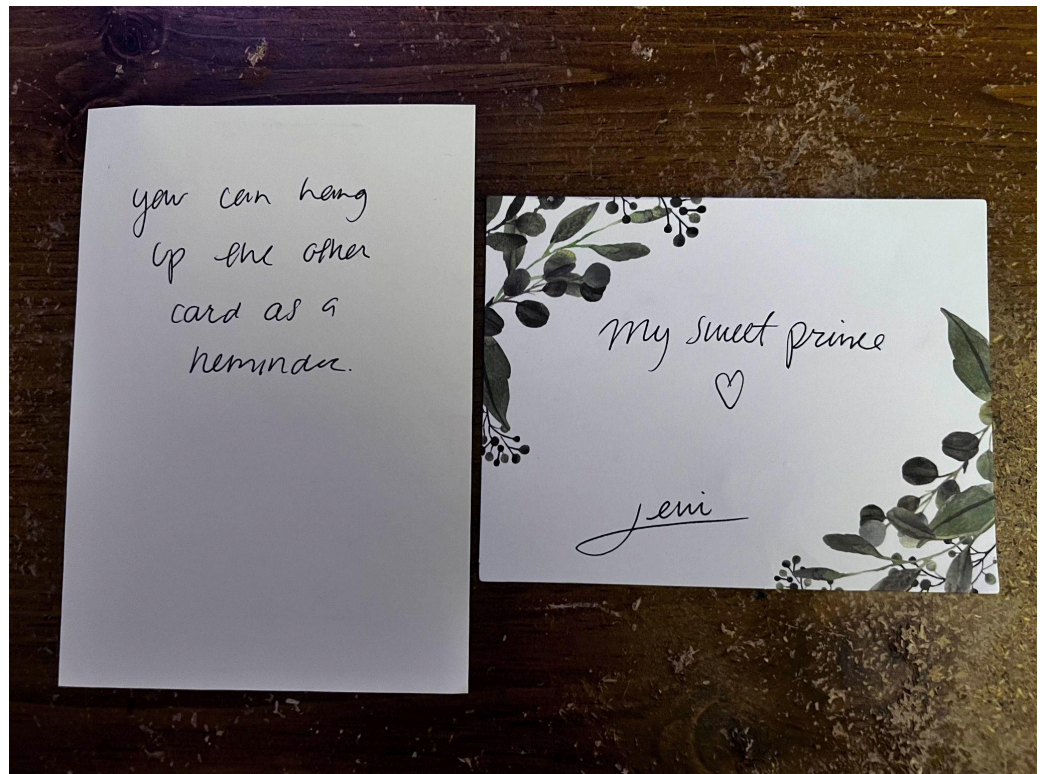 you can hang
up the other
card as a
reminder.
My sweet prince
♡
Jeni